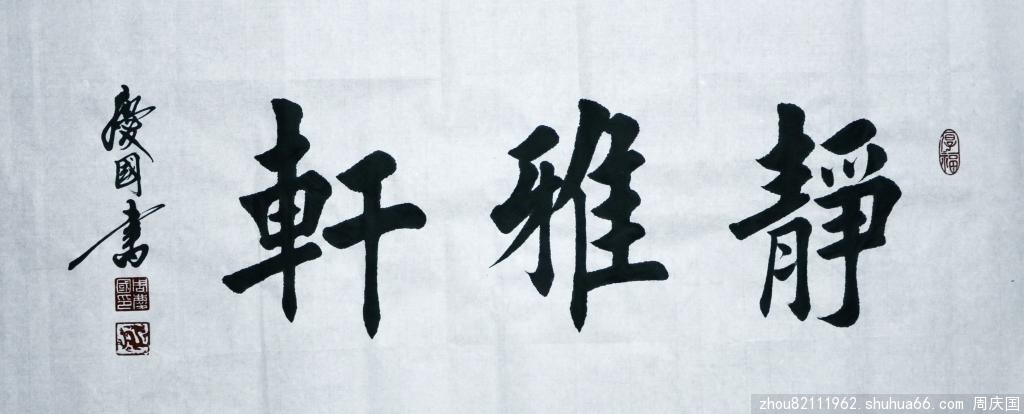 靜雅軒
慶國書
厚福
周慶國印
zhou82111962.shuhua66.com 周庆国